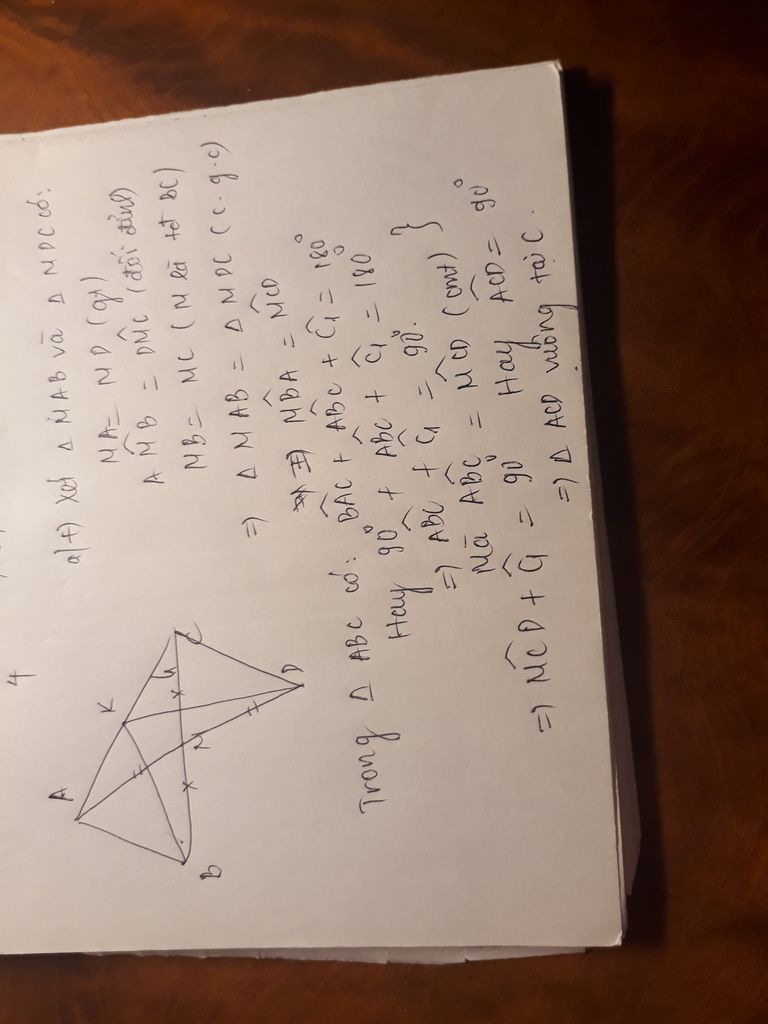 4
a) +) Xét △ MAB và △ MDC có:
MA = MD (gt)
AM̂B = DM̂C (đối đỉnh)
MB = MC (M là tđ BC)
=> △ MAB = △ MDC (c.g.c)
=> MB̂A = MĈD
Trong △ ABC có: BÂC + AB̂C + Ĉ1 = 180°
Hay 90° + AB̂C + Ĉ1 = 180°
=> AB̂C + Ĉ1 = 90°.
Mà AB̂C = MĈD (cmt) }
=> MĈD + Ĉ1 = 90° Hay AĈD = 90°
=> △ ACD vuông tại C.
A
K
C
B
M
D